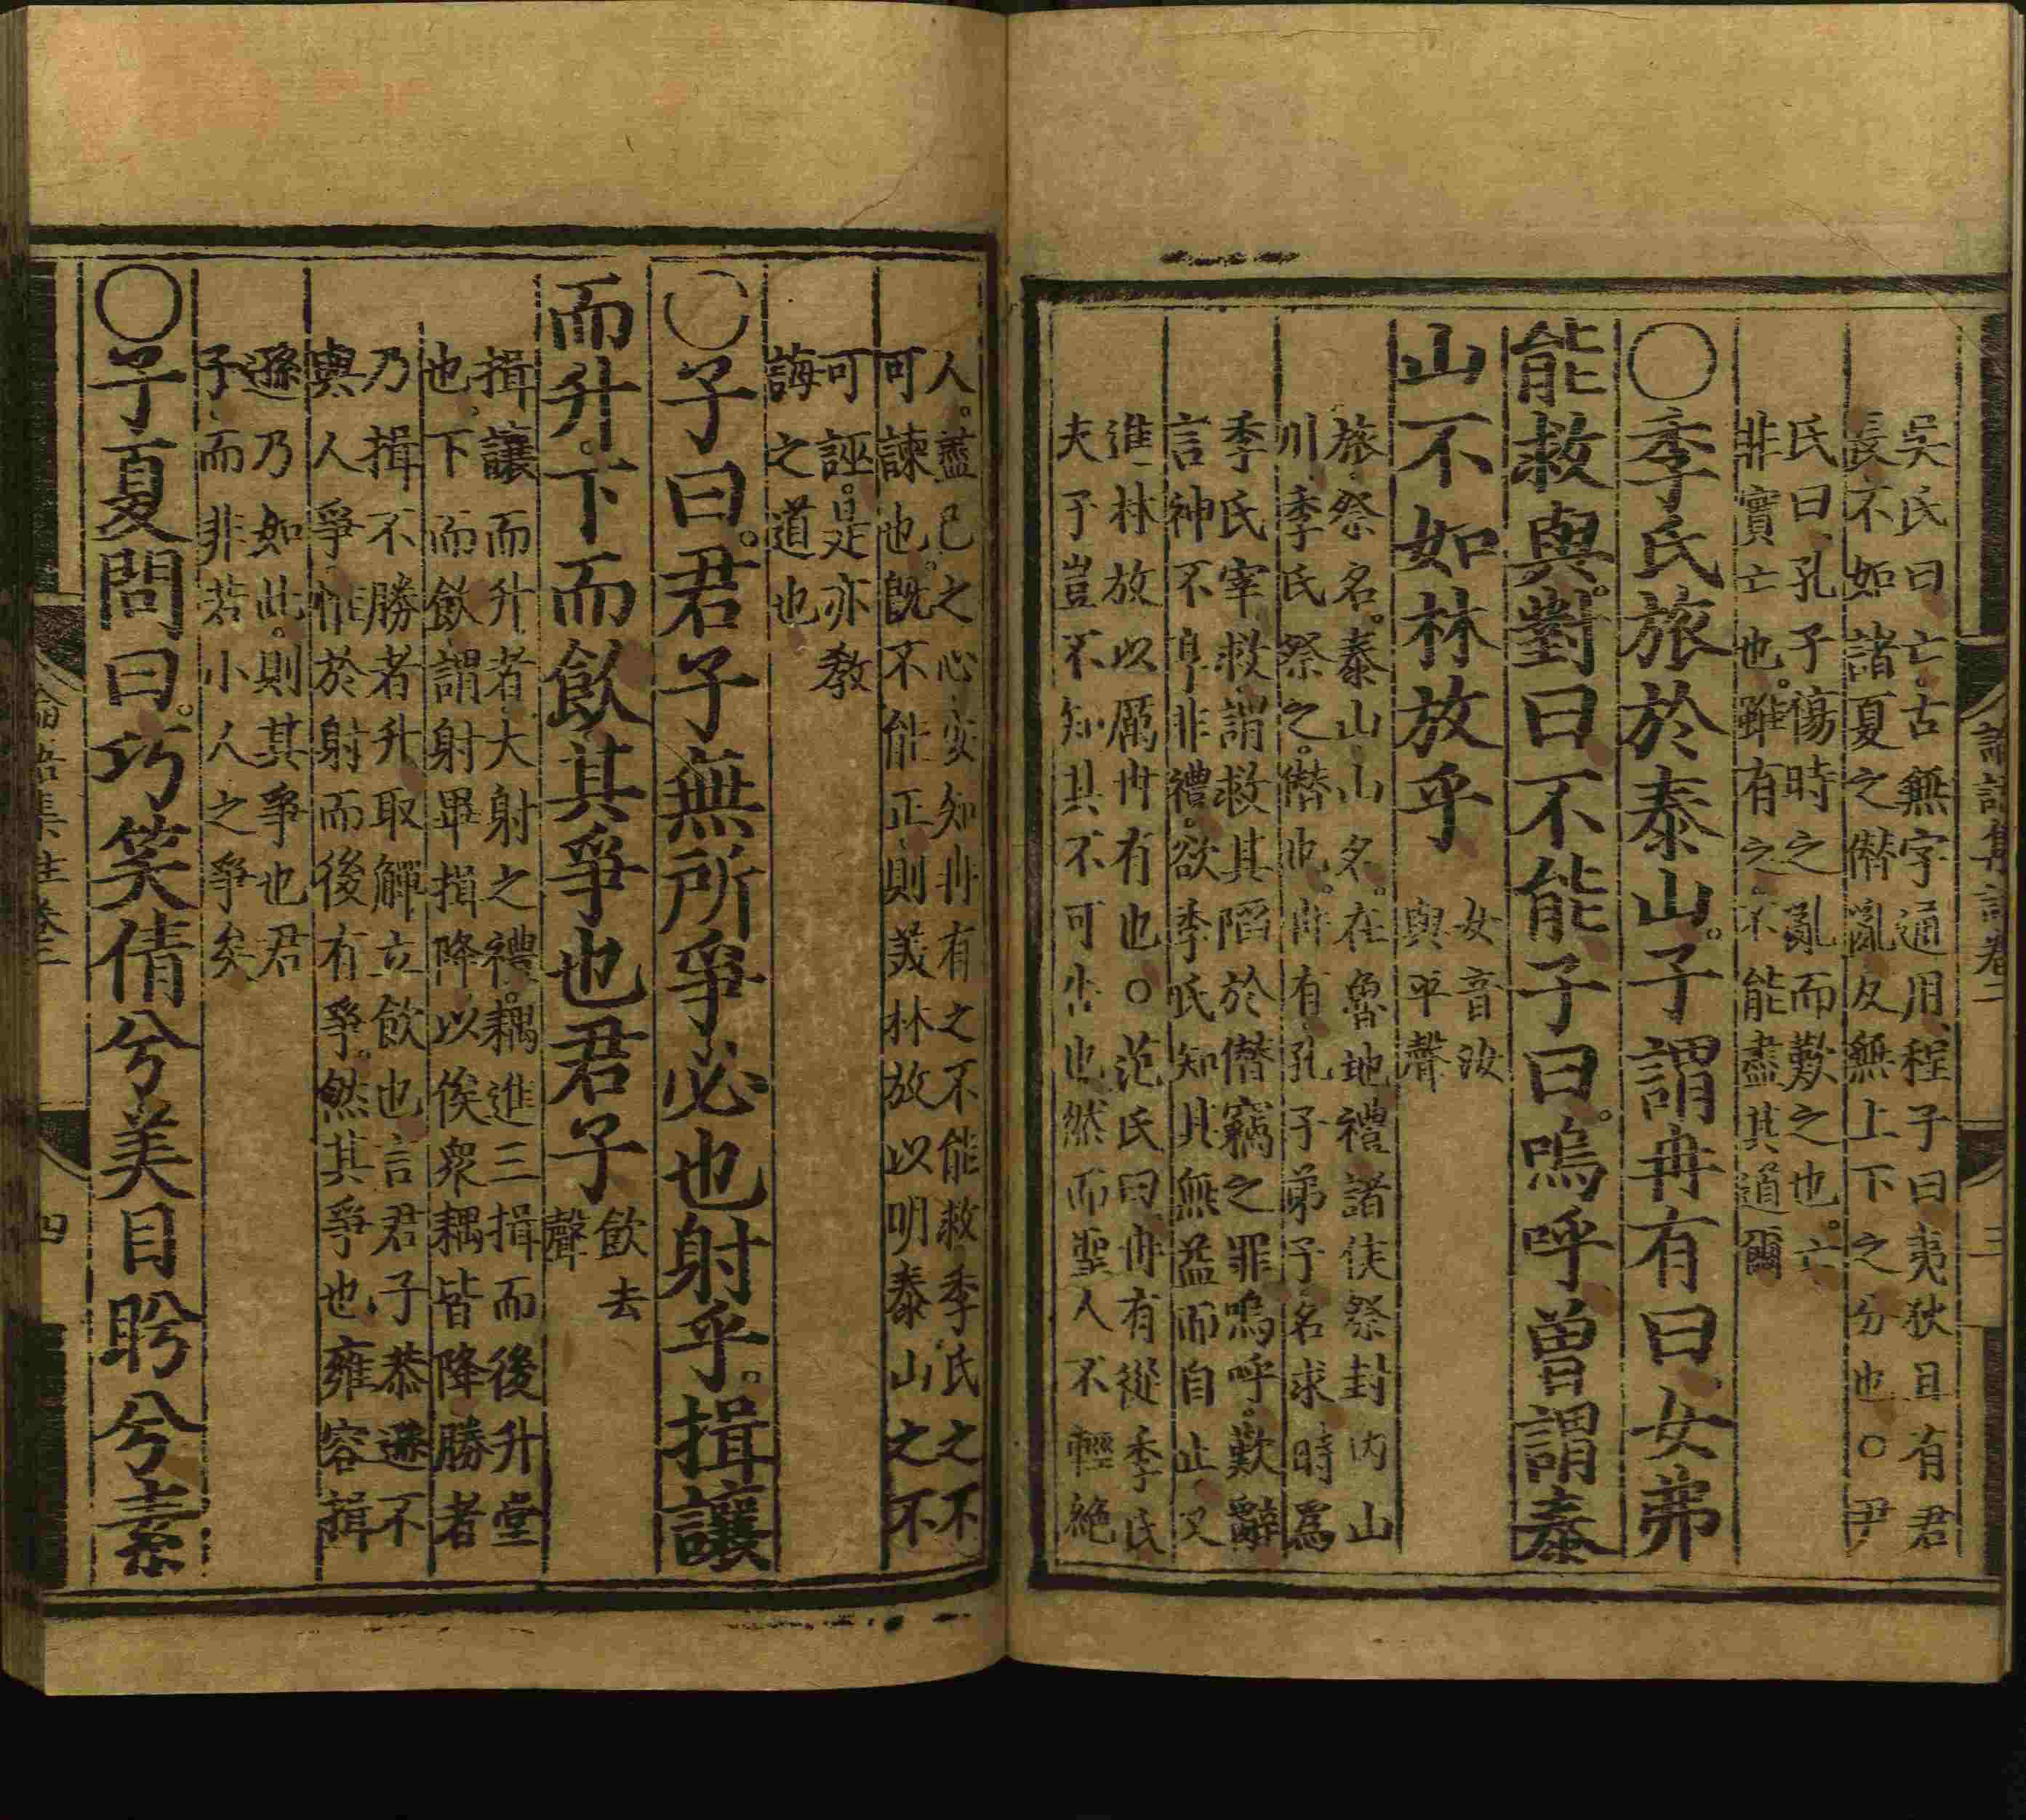 論語集註卷二
三
吳氏曰亡。古無字通用、程子曰夷狄且有君
長不如諸夏之僭亂反無上下之分也。○尹
氏曰、孔子傷時之亂而歎之也。亡
非實亡也。雖有之。不能盡其道爾
○季氏旅於泰山。子謂冉有曰女弗
能救與。對曰不能子曰。嗚呼曾謂泰
山不如林放乎
女音汝
與平聲
旅、祭名。泰山、山名。在魯地禮諸侯祭封内山
川、季氏祭之。僭也。冉有、孔子弟子、名求時爲
季氏宰救、謂救其陷於僭竊之罪嗚呼。歎辭
言神不享非禮。欲季氏知其無益而自止又
進林放以厲冉有也○范氏曰冉有從季氏
夫子豈不知其不可告也然而聖人不輕絶
人。盡己之心、安知冉有之不能救、季氏之不
可諫也。既不能正、則美林放以明泰山之不
可誣。是亦教
誨之道也
○子曰。君子無所爭必也射乎。揖讓
而升。下而飲其爭也君子
飲去
聲
揖讓而升者、大射之禮。耦進三揖而後升堂
也、下而飲、謂射畢揖降以俟衆耦皆降勝者
乃揖不勝者升取觶立飲也言君子恭遜不
與人爭、惟於射而後有爭。然其爭也雍容揖
遜乃如此。則其爭也君
子、而非若小人之爭矣
○子夏問曰。巧笑倩兮美目盼兮素
論語集註卷二
四